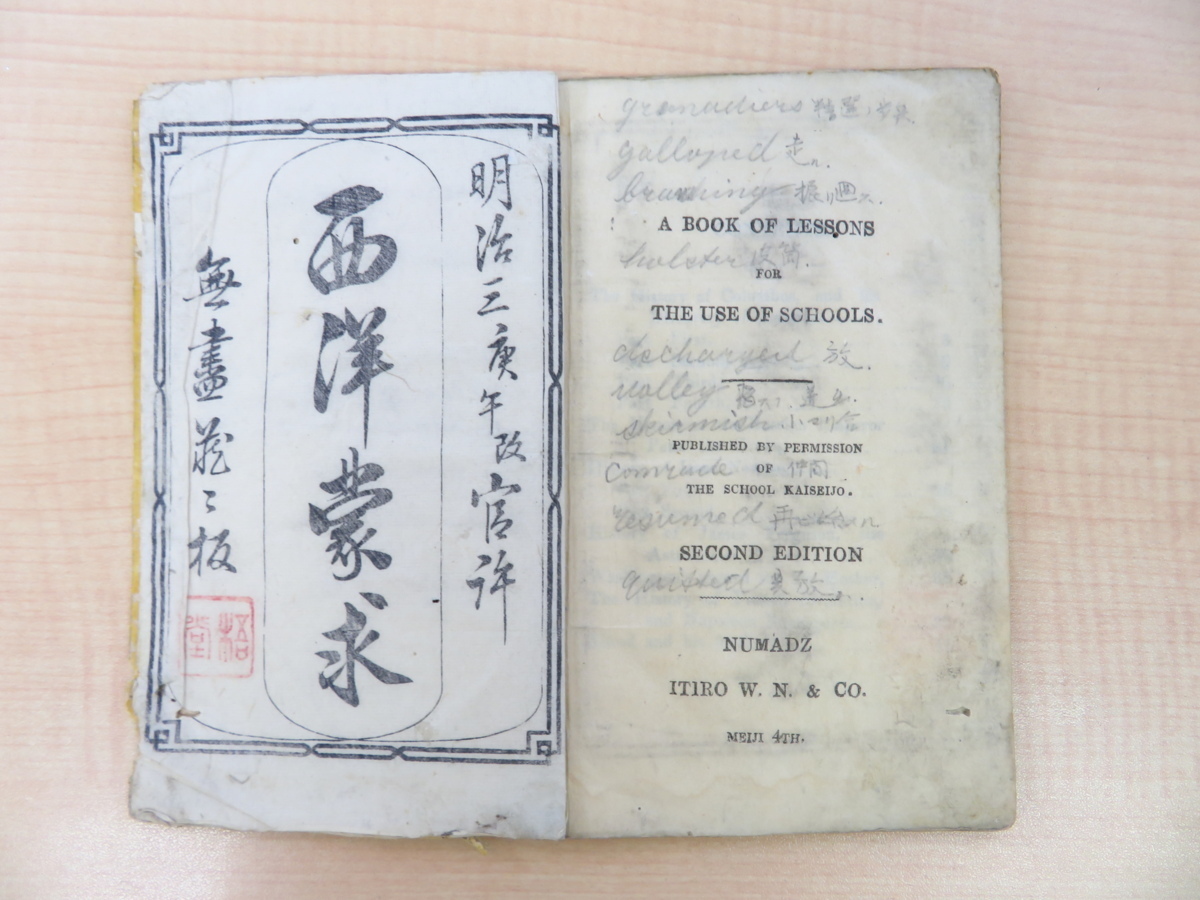 明治三庚午改官許
西洋蒙求
無盡蔵々板
梧堂
grenadiers
galloped 走
A BOOK OF LESSONS
holster
FOR
THE USE OF SCHOOLS.
decharged 放
volley
skirmish
PUBLISHED BY PERMISSION
OF
comrade 仲間
THE SCHOOL KAISEIJO.
resumed
SECOND EDITION
quitted
NUMADZ
ITIRO W. N. & CO.
MEIJI 4TH.